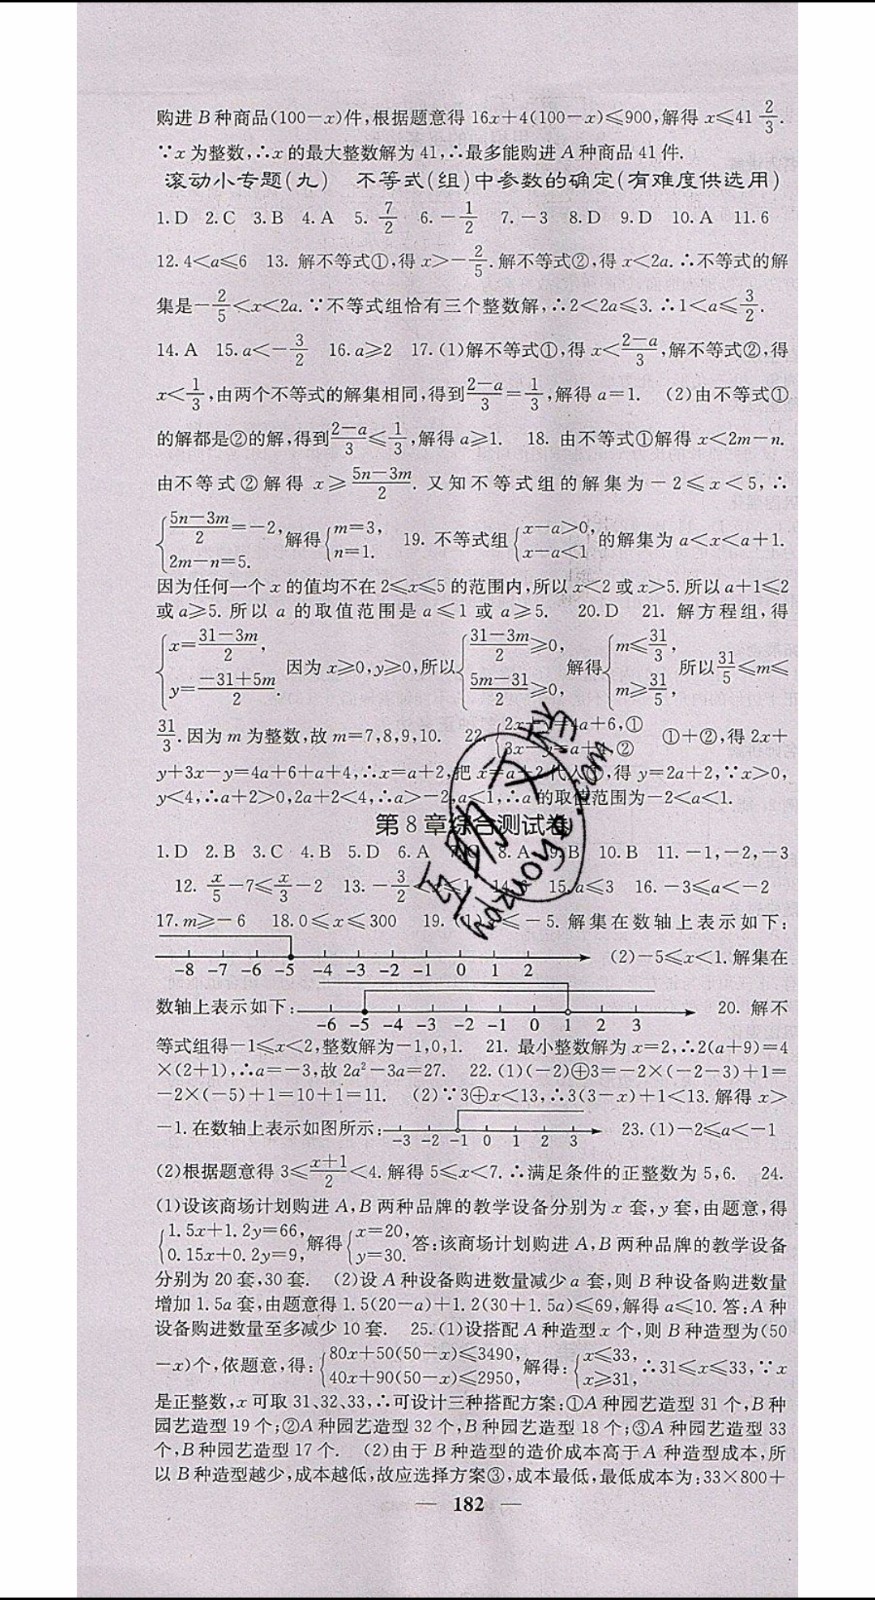 购进B种商品(100-x)件,根据题意得16x+4(100-x)≤900,解得x≤41 2/3.
∵x为整数,∴x的最大整数解为41,∴最多能购进A种商品41件.
滚动小专题(九) 不等式(组)中参数的确定(有难度供选用)
1.D 2.C 3.B 4.A 5. 7/2 6. -1/2 7. -3 8.D 9.D 10.A 11.6
12.4<a≤6 13. 解不等式①,得x>-2/5.解不等式②,得x<2a.∴不等式的解
集是-2/5<x<2a.∵不等式组恰有三个整数解,∴2<2a≤3.∴1<a≤3/2.
14.A 15.a<-3/2 16.a≥2 17.(1)解不等式①,得x<(2-a)/3,解不等式②,得
x<1/3,由两个不等式的解集相同,得到(2-a)/3=1/3,解得a=1. (2)由不等式①
的解都是②的解,得到(2-a)/3≤1/3,解得a≥1. 18. 由不等式①解得x<2m-n.
由不等式②解得x≥(5n-3m)/2. 又知不等式组的解集为-2≤x<5,∴
{(5n-3m)/2=-2, 2m-n=5. 解得{m=3, n=1. 19. 不等式组{x-a>0, x-a<1 的解集为a<x<a+1.
因为任何一个x的值均不在2≤x≤5的范围内,所以x<2或x>5.所以a+1≤2
或a≥5. 所以a的取值范围是a≤1或a≥5. 20.D 21. 解方程组,得
{x=(31-3m)/2, y=(-31+5m)/2. 因为x≥0,y≥0,所以{(31-3m)/2≥0, (5m-31)/2≥0, 解得{m≤31/3, m≥31/5, 所以31/5≤m≤
31/3.因为m为整数,故m=7,8,9,10. 22. {2x+y=4a+6,① 3x-y=a+4 ② ①+②,得2x+
y+3x-y=4a+6+a+4,∴x=a+2,把x=a+2代入①,得y=2a+2,∵x>0,
y<4,∴a+2>0,2a+2<4,∴a>-2,a<1,∴a的取值范围为-2<a<1.
第8章综合测试卷
1.D 2.B 3.C 4.B 5.D 6.A 8.A 9.B 10.B 11. -1,-2,-3
12. x/5-7≤x/3-2 13. -3/2 15.a≤3 16. -3≤a<-2
17.m≥-6 18.0≤x≤300 19. ≤-5. 解集在数轴上表示如下:
-8 -7 -6 -5 -4 -3 -2 -1 0 1 2 (2)-5≤x<1.解集在
数轴上表示如下: -6 -5 -4 -3 -2 -1 0 1 2 3 20. 解不
等式组得-1≤x<2,整数解为-1,0,1. 21. 最小整数解为x=2,∴2(a+9)=4
×(2+1),∴a=-3,故2a²-3a=27. 22.(1)(-2)⊕3=-2×(-2-3)+1=
-2×(-5)+1=10+1=11. (2)∵3⊕x<13,∴3(3-x)+1<13.解得x>
-1.在数轴上表示如图所示: -3 -2 -1 0 1 2 3 23.(1)-2≤a<-1
(2)根据题意得3≤(x+1)/2<4.解得5≤x<7.∴满足条件的正整数为5,6. 24.
(1)设该商场计划购进A,B两种品牌的教学设备分别为x套,y套,由题意,得
{1.5x+1.2y=66, 0.15x+0.2y=9, 解得{x=20, y=30. 答:该商场计划购进A,B两种品牌的教学设备
分别为20套,30套. (2)设A种设备购进数量减少a套,则B种设备购进数量
增加1.5a套,由题意得1.5(20-a)+1.2(30+1.5a)≤69,解得a≤10.答:A种
设备购进数量至多减少10套. 25.(1)设搭配A种造型x个,则B种造型为(50
-x)个,依题意,得:{80x+50(50-x)≤3490, 40x+90(50-x)≤2950, 解得:{x≤33, x≥31, ∴31≤x≤33,∵x
是正整数,x可取31、32、33,∴可设计三种搭配方案:①A种园艺造型31个,B种
园艺造型19个;②A种园艺造型32个,B种园艺造型18个;③A种园艺造型33
个,B种园艺造型17个. (2)由于B种造型的造价成本高于A种造型成本,所
以B种造型越少,成本越低,故应选择方案③,成本最低,最低成本为:33×800+
— 182 —
互助文档
hdzuoye.com